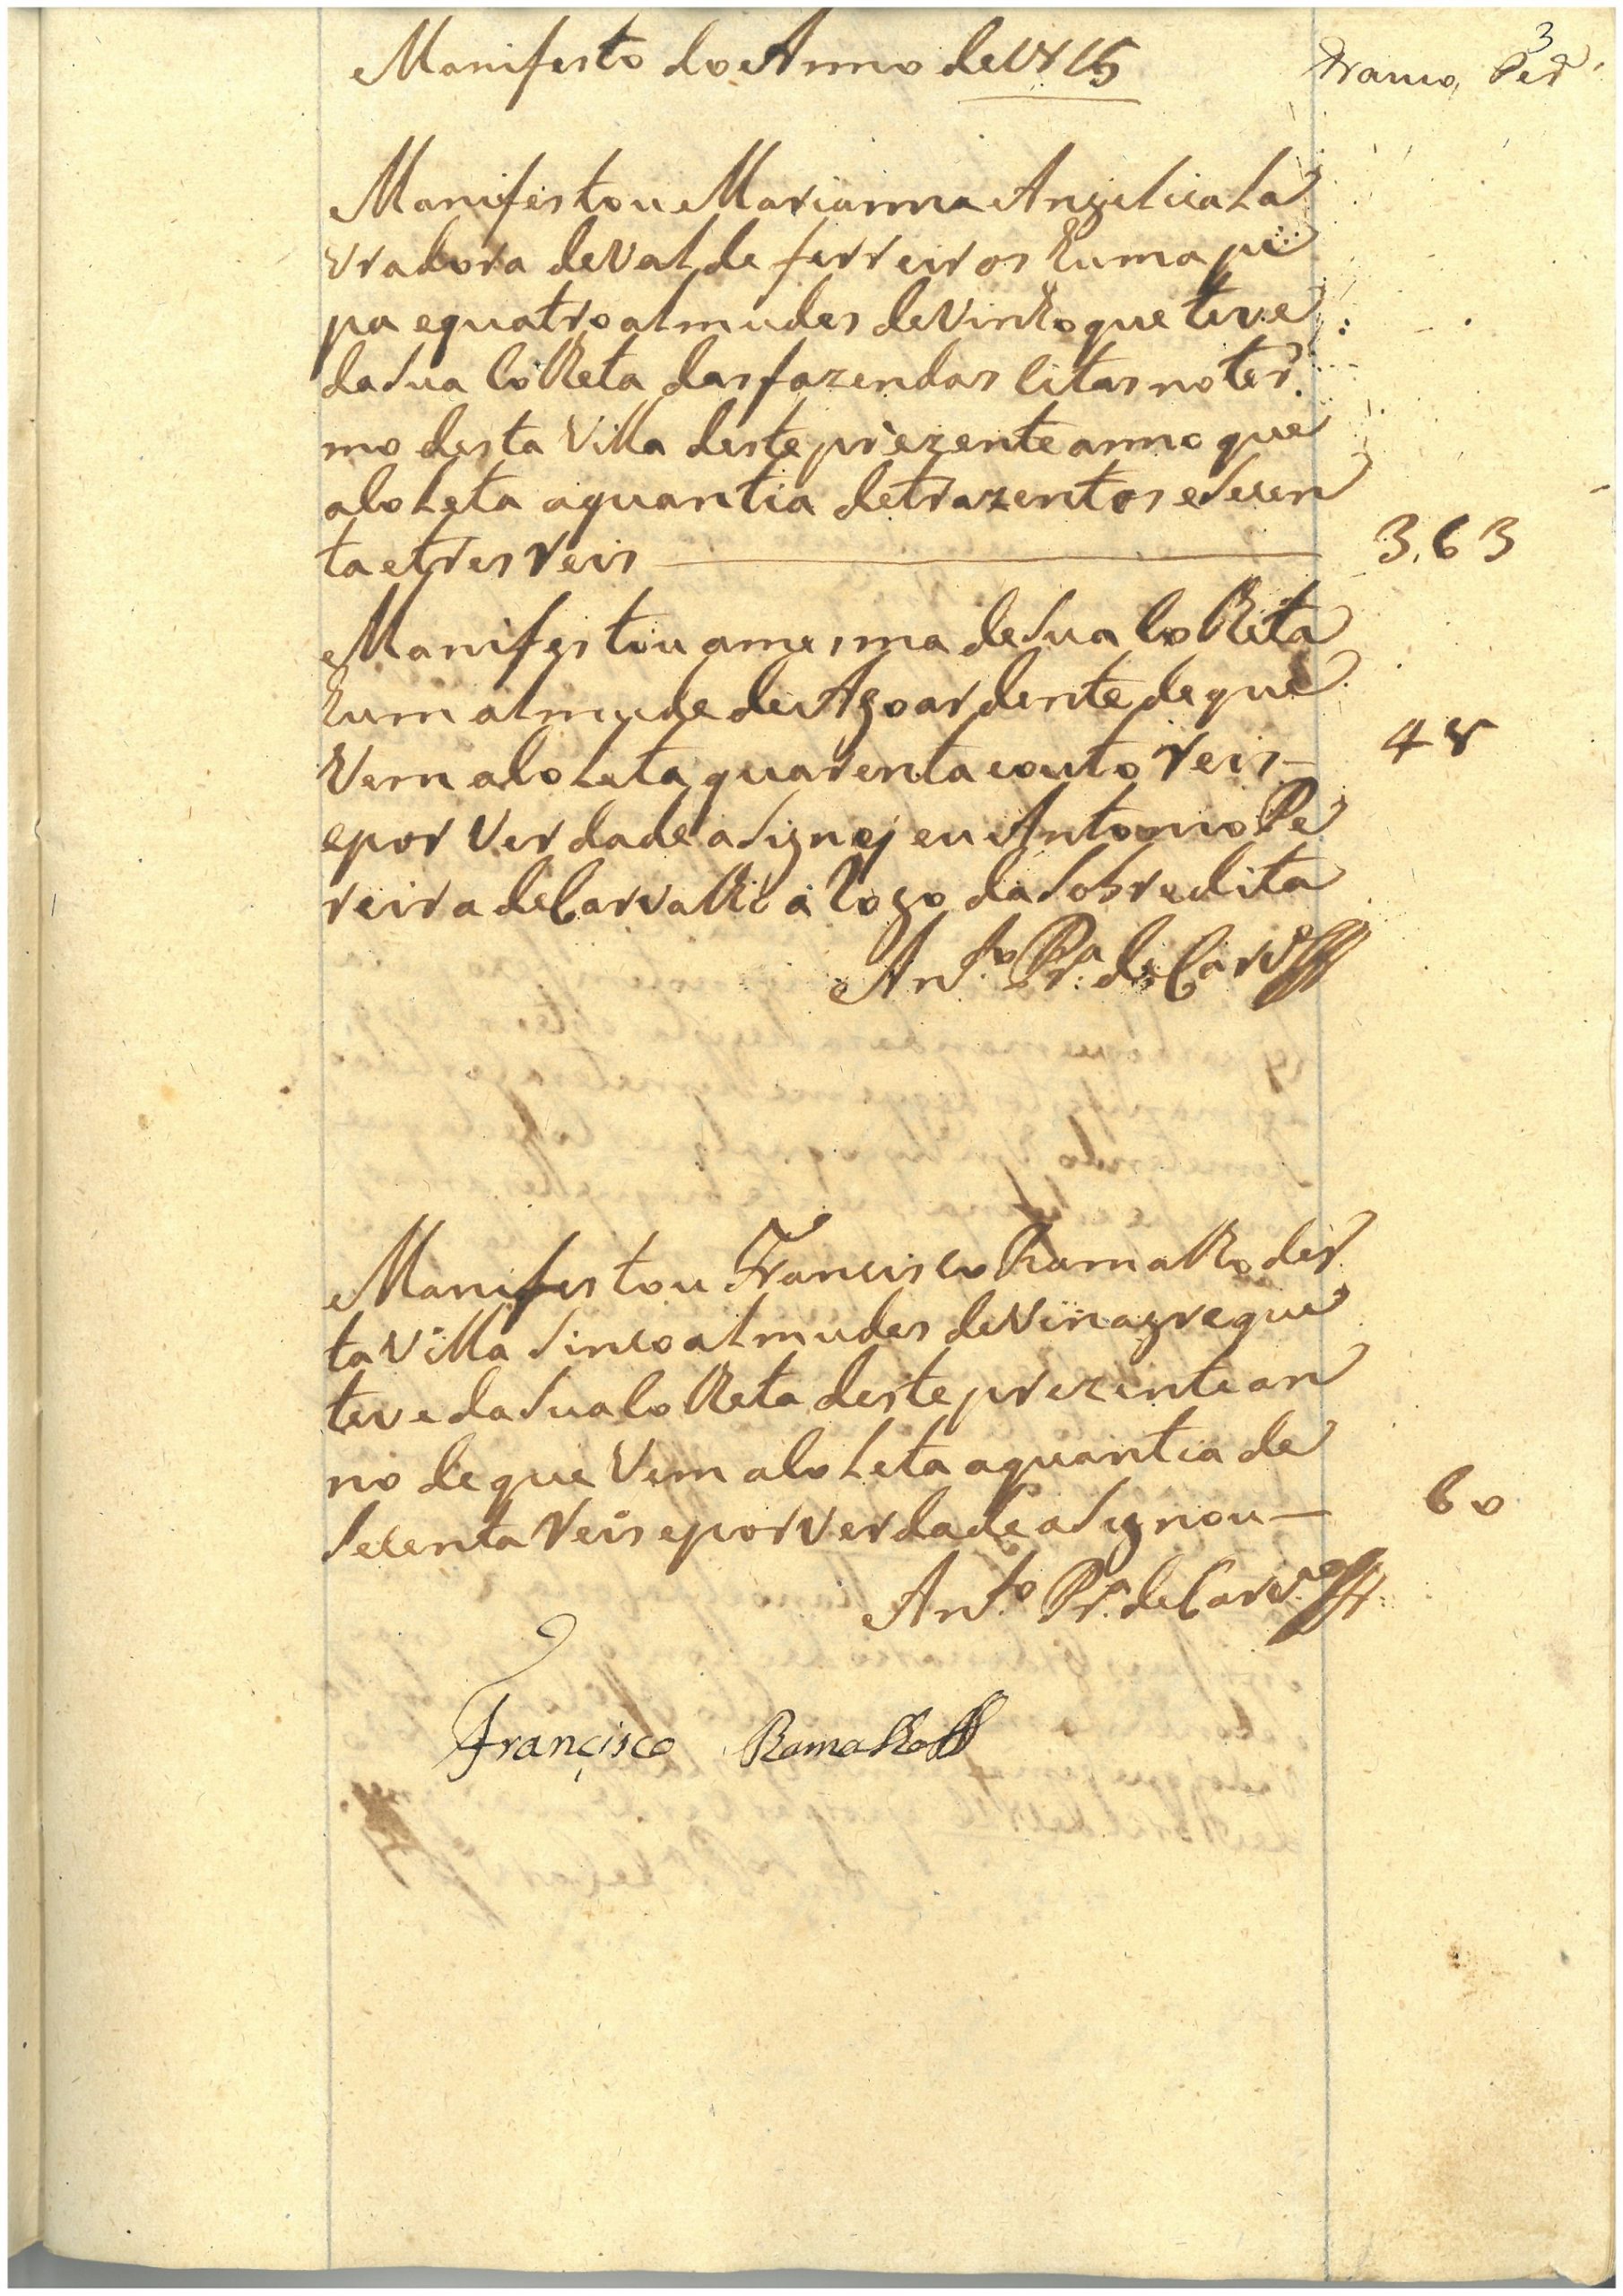 Manifesto do Anno de 1715
3
Franco, Per
Manifestou Marianna Angelica La
vradora de Val de ferreiros huma pi
pa e quatro almudes de Vinho que teve
da Sua Colheta das fazendas citas no ter
mo desta Villa deste prezente anno que
a coLeta a quantia de trazentos e Secen
ta e tres reis 363
Manifestou a mesma de Sua Colheta
hum almude de Agoardente de que
Vem a coLeta quarenta e outo reis 48
e por Verdade aSignej eu Antonio Pe
reira de Carvalho a Rogo da Sobredita
Ant.o Pr.a de Carv.o
Manifestou Francisco Ramalho des
ta Villa Sinco almudes de Vinagre que
teve da Sua Colheta deste prezente an
no de que Vem a coLeta a quantia de
Secenta reis e por verdade aSignou 60
Ant.o Pr.a de Carv.o
Francisco Ramalho